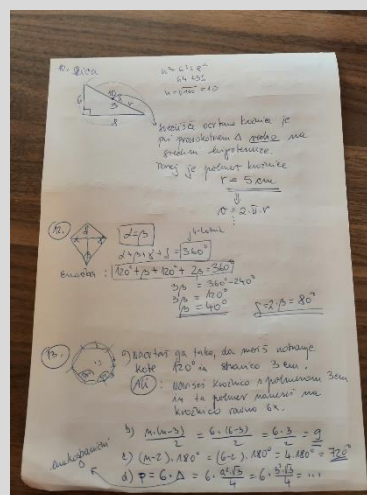 n² = 6² + 8²
6
10
5
r
8
središče očrtane krožnice je
pri pravokotnem Δ vedno na
sredini hipotenuze.
Torej je polmer krožnice
r = 5 cm
12.
α = β
360°
120° + β + 120° + 2β = 360°
3β = 360° - 240°
3β = 120°
β = 40°
δ = 2·β = 80°
13.
a) načrtaš ga tako, da meriš notranje
kote 120° in stranico 3 cm.
Ali: narišeš krožnico s polmerom 3 cm
in ta polmer naneseš na
krožnico ravno 6x.
b) n·(n-3)/2 = 6·(6-3)/2 = 6·3/2 = 9
c) (n-2)·180° = (6-2)·180° = 4·180° = 720°
enakostranični
d) p = 6·Δ = 6·a²·√3/4 = 6·3²√3/4 = ...